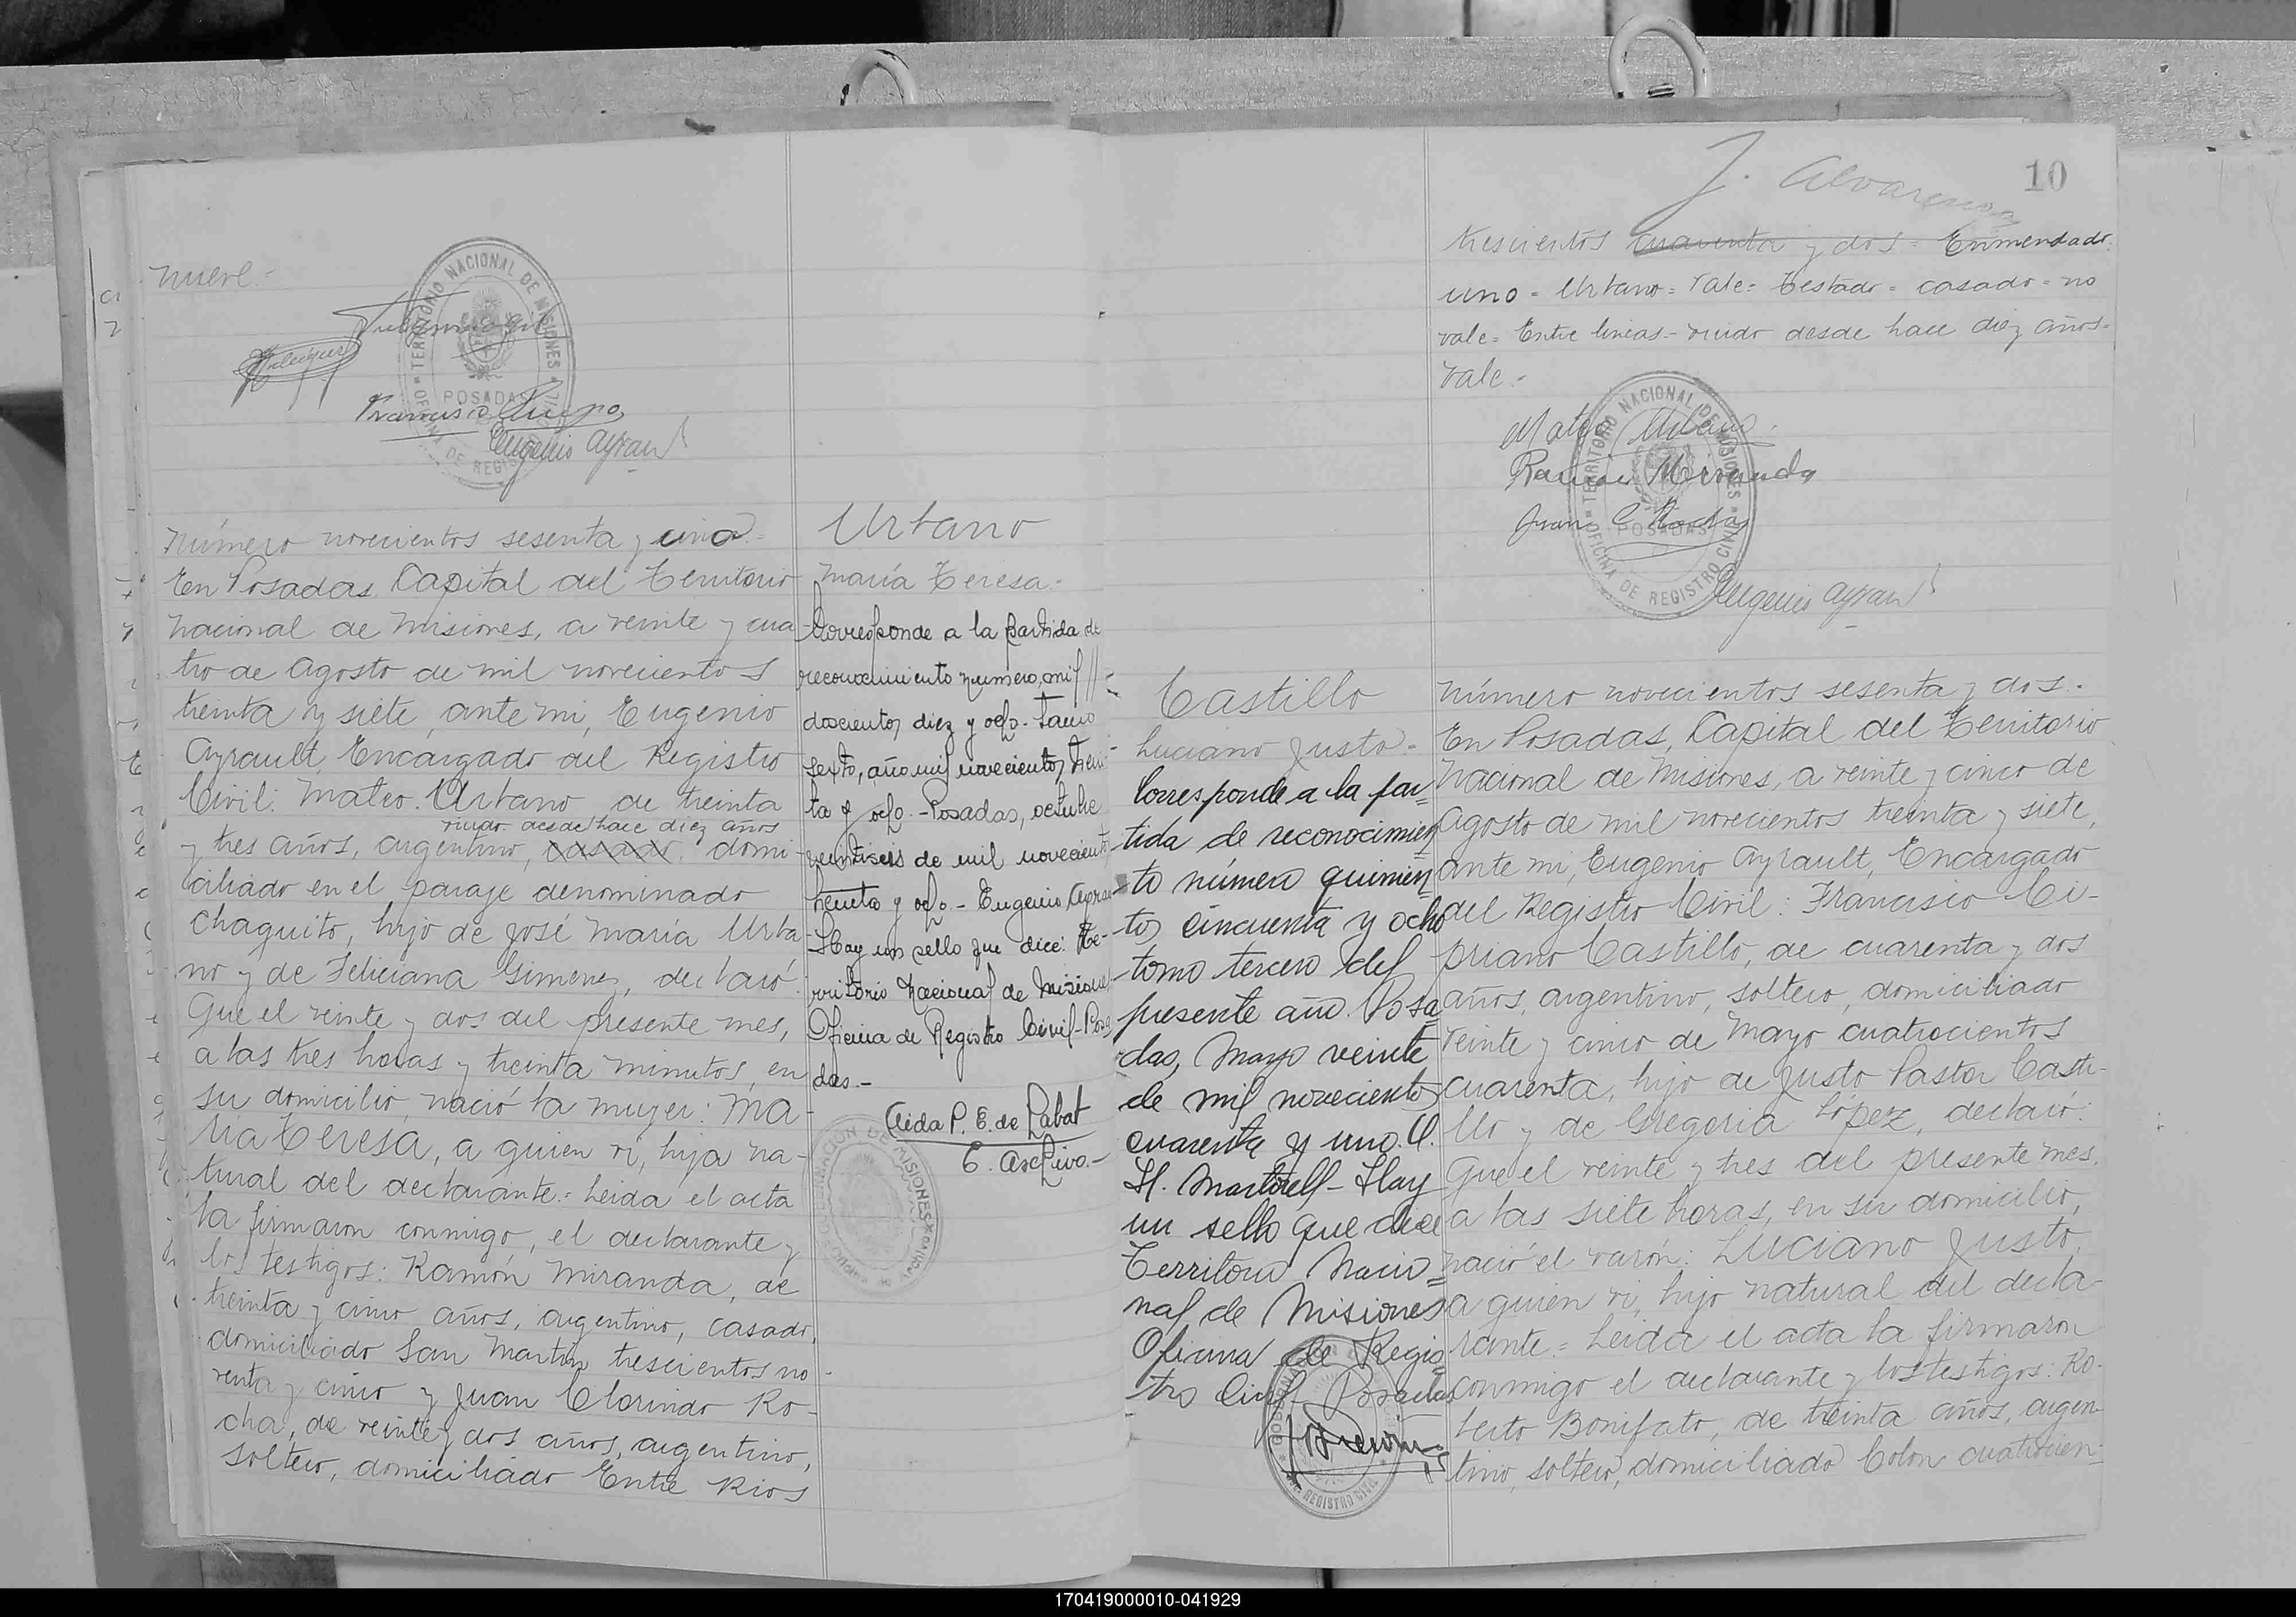 nueve.-
TERRITORIO NACIONAL DE MISIONES
POSADAS
OFICINA DE REGISTRO CIVIL
Francisco
Eugenio Ayrault
Número novecientos sesenta y uno.=
En Posadas Capital del Territorio
Nacional de Misiones, a veinte y cua-
tro de Agosto de mil novecientos
treinta y siete, ante mi, Eugenio
Ayrault, Encargado del Registro
Civil: Mateo Urbano de treinta
viudo desde hace diez años
y tres años, argentino, casado. domi-
ciliado en el paraje denominado
Chaquito, hijo de José María Urba-
no y de Feliciana Gimenez, declaró:
Que el veinte y dos del presente mes,
a las tres horas y treinta minutos, en
su domicilio, nació la mujer: Ma-
ria Teresa, a quien vi, hija na-
tural del declarante.= Leida el acta
la firmaron conmigo, el declarante y
los testigos: Ramón Miranda, de
treinta y cinco años, argentino, casado,
domiciliado San Martin trescientos no-
venta y cinco y Juan Clorindo Ro-
cha, de veinte y dos años, argentino,
soltero, domiciliado Entre Rios
Urbano
María Teresa.-
Corresponde a la partida de
reconocimiento número, mil
doscientos diez y ocho- Tomo
sexto, año mil novecientos trein-
ta y ocho.- Posadas, octubre
veintiseis de mil novecientos
treinta y ocho- Eugenio Ayrault
Hay un sello que dice: Te-
rritorio Nacional de Misiones
Oficina de Registro Civil- Posa
das.-
Aida P. E. de Labat
E. Archivo.-
10
J. Alvarenga
trescientos cuarenta y dos = Enmendado.
uno = Urbano = Vale = Testado = casado = no
vale = Entre lineas - viudo desde hace diez años-
Vale.-
Mateo Urbano
TERRITORIO NACIONAL DE MISIONES
Ramón Miranda
Juan C Rocha
POSADAS
OFICINA DE REGISTRO CIVIL
Eugenio Ayrault
Castillo
Luciano Justo.-
Corresponde a la par-
tida de reconocimien
to número quinien
tos cincuenta y ocho
tomo tercero del
presente año. Posa
das, Mayo veinte
de mil novecientos
cuarenta y uno. O.
H. Martorell- Hay
un sello que dice
Territorio Nacio=
nal de Misiones
Oficina de Regis
tro Civil Posadas
REGISTRO CIVIL
Número novecientos sesenta y dos.-
En Posadas, Capital del Territorio
Nacional de Misiones, a veinte y cinco de
Agosto de mil novecientos treinta y siete,
ante mi, Eugenio Ayrault, Encargado
del Registro Civil: Francisco Ci-
priano Castillo, de cuarenta y dos
años, argentino, soltero, domiciliado
Veinte y cinco de Mayo cuatrocientos
cuarenta, hijo de Justo Pastor Casti-
llo y de Gregoria López, declaró:
Que el veinte y tres del presente mes,
a las siete horas, en su domicilio,
nació el varón: Luciano Justo,
a quien vi, hijo natural del decla-
rante.= Leida el acta la firmaron
conmigo el declarante y los testigos: Ro-
berto Bonifato, de treinta años, argen-
tino, soltero, domiciliado Colon cuatrocien-
170419000010-041929